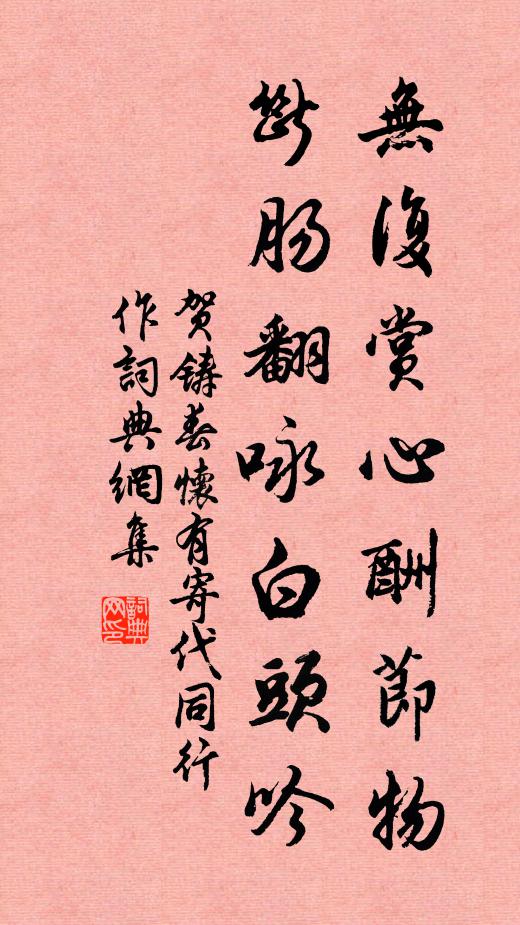 無復賞心酬節物
斷肠翻咏白頭吟
贺鑄春懷有寄代同行
作詞典網集
詞典
网印